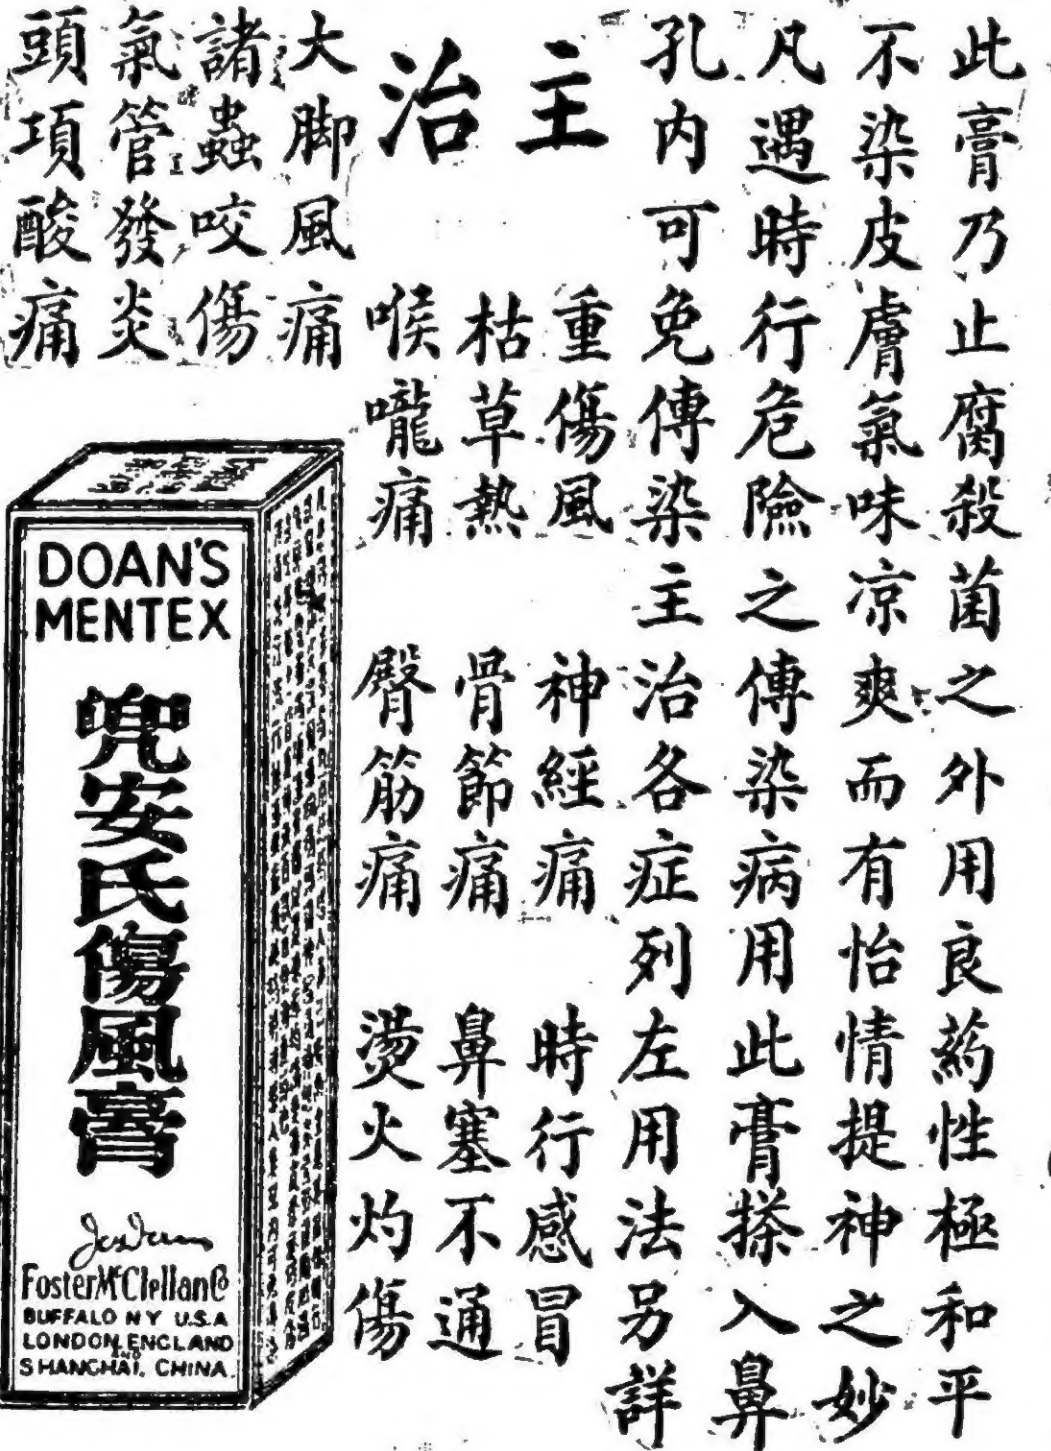 此膏乃止腐殺菌之外用良葯性極和平
不染皮膚氣味凉爽而有怡情提神之妙
凡遇時行危險之傳染病用此膏搽入鼻
孔内可免傳染主治各症列左用法另詳
主治
重傷風 神經痛 時行感冒
枯草熱 骨節痛 鼻塞不通
喉嚨痛 臀筋痛 燙火灼傷
大脚風痛
諸蟲咬傷
氣管發炎
頭項酸痛
DOAN'S
MENTEX
兜安氏傷風膏
Foster McClellan Co
BUFFALO N Y U.S.A
LONDON, ENGLAND
AND
SHANGHAI, CHINA.